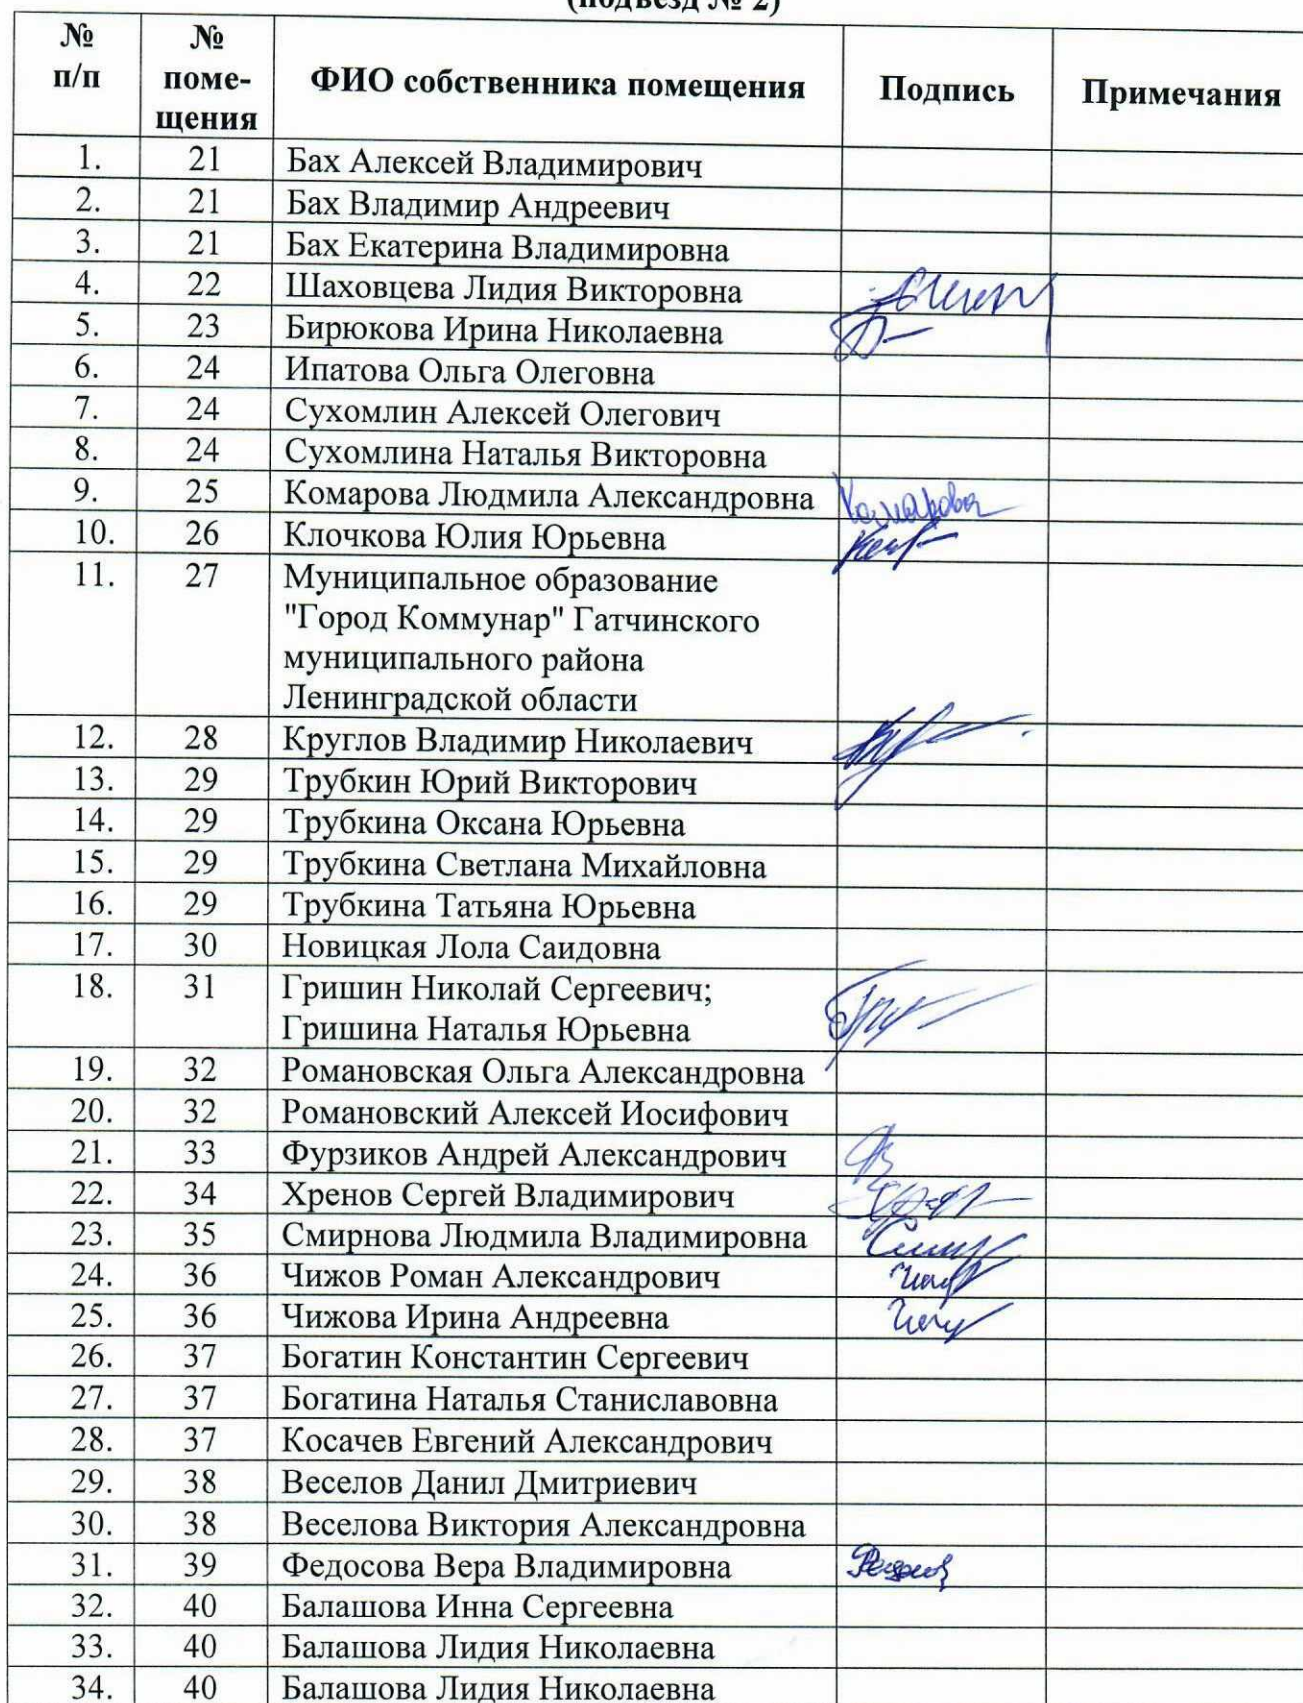 (подъезд № 2)
№ п/п № поме-щения ФИО собственника помещения Подпись Примечания
1. 21 Бах Алексей Владимирович
2. 21 Бах Владимир Андреевич
3. 21 Бах Екатерина Владимировна
4. 22 Шаховцева Лидия Викторовна
5. 23 Бирюкова Ирина Николаевна
6. 24 Ипатова Ольга Олеговна
7. 24 Сухомлин Алексей Олегович
8. 24 Сухомлина Наталья Викторовна
9. 25 Комарова Людмила Александровна Комарова
10. 26 Клочкова Юлия Юрьевна
11. 27 Муниципальное образование
"Город Коммунар" Гатчинского
муниципального района
Ленинградской области
12. 28 Круглов Владимир Николаевич
13. 29 Трубкин Юрий Викторович
14. 29 Трубкина Оксана Юрьевна
15. 29 Трубкина Светлана Михайловна
16. 29 Трубкина Татьяна Юрьевна
17. 30 Новицкая Лола Саидовна
18. 31 Гришин Николай Сергеевич;
Гришина Наталья Юрьевна
19. 32 Романовская Ольга Александровна
20. 32 Романовский Алексей Иосифович
21. 33 Фурзиков Андрей Александрович
22. 34 Хренов Сергей Владимирович
23. 35 Смирнова Людмила Владимировна
24. 36 Чижов Роман Александрович
25. 36 Чижова Ирина Андреевна
26. 37 Богатин Константин Сергеевич
27. 37 Богатина Наталья Станиславовна
28. 37 Косачев Евгений Александрович
29. 38 Веселов Данил Дмитриевич
30. 38 Веселова Виктория Александровна
31. 39 Федосова Вера Владимировна
32. 40 Балашова Инна Сергеевна
33. 40 Балашова Лидия Николаевна
34. 40 Балашова Лидия Николаевна